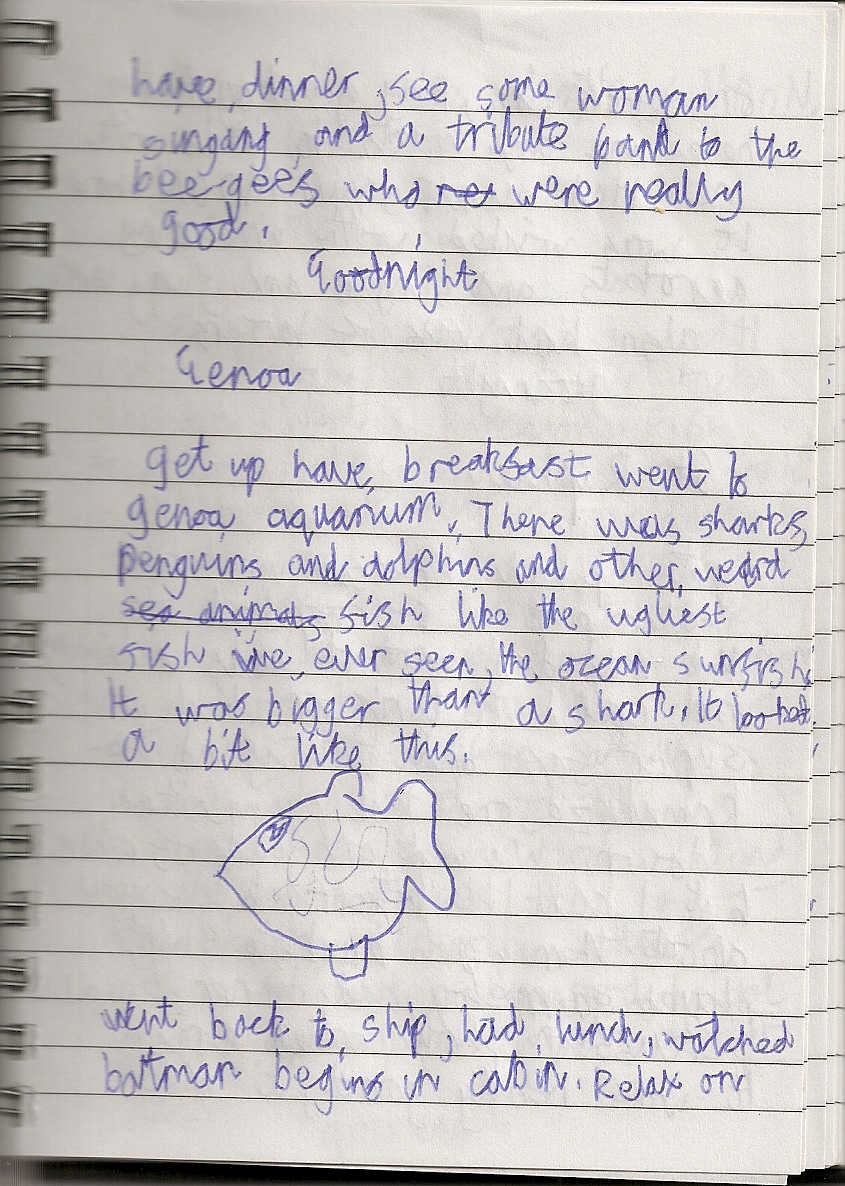 have dinner, see some woman
singang and a tribute band to the
bee-gees who re were really
good.
Goodnight
Genoa
get up have breakfast went to
genoa aquarium. There was sharks,
penguins and dolphins and other weard
sea animals fish like the ugliest
fish ive ever seen, the ocean sunfish.
It was bigger than a shark. It looked
a bit like this.
went back to ship, had lunch, watched
batman begins in cabin. Relax on